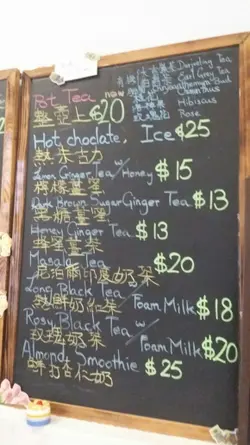 Darjeeling Tea
Earl Grey Tea
Chrysanthemum Bud
Osmanthus
Hibiscus
玫瑰花 Rose
Pot Tea now
熱壺上 $20
Hot choclate, Ice $25
熱朱古力
Lemon Ginger Tea w/ Honey $15
檸檬薑蜜
Dark Brown Sugar Ginger Tea $13
黑糖薑蜜
Honey Ginger Tea $13
蜂蜜薑茶
Masala Tea $20
尼泊爾印度奶茶
Long Black Tea
熱鮮奶紅茶 Foam Milk $18
Rosy Black Tea w/
玫瑰奶茶 Foam Milk $20
Almond Smoothie $25
鮮打杏仁奶